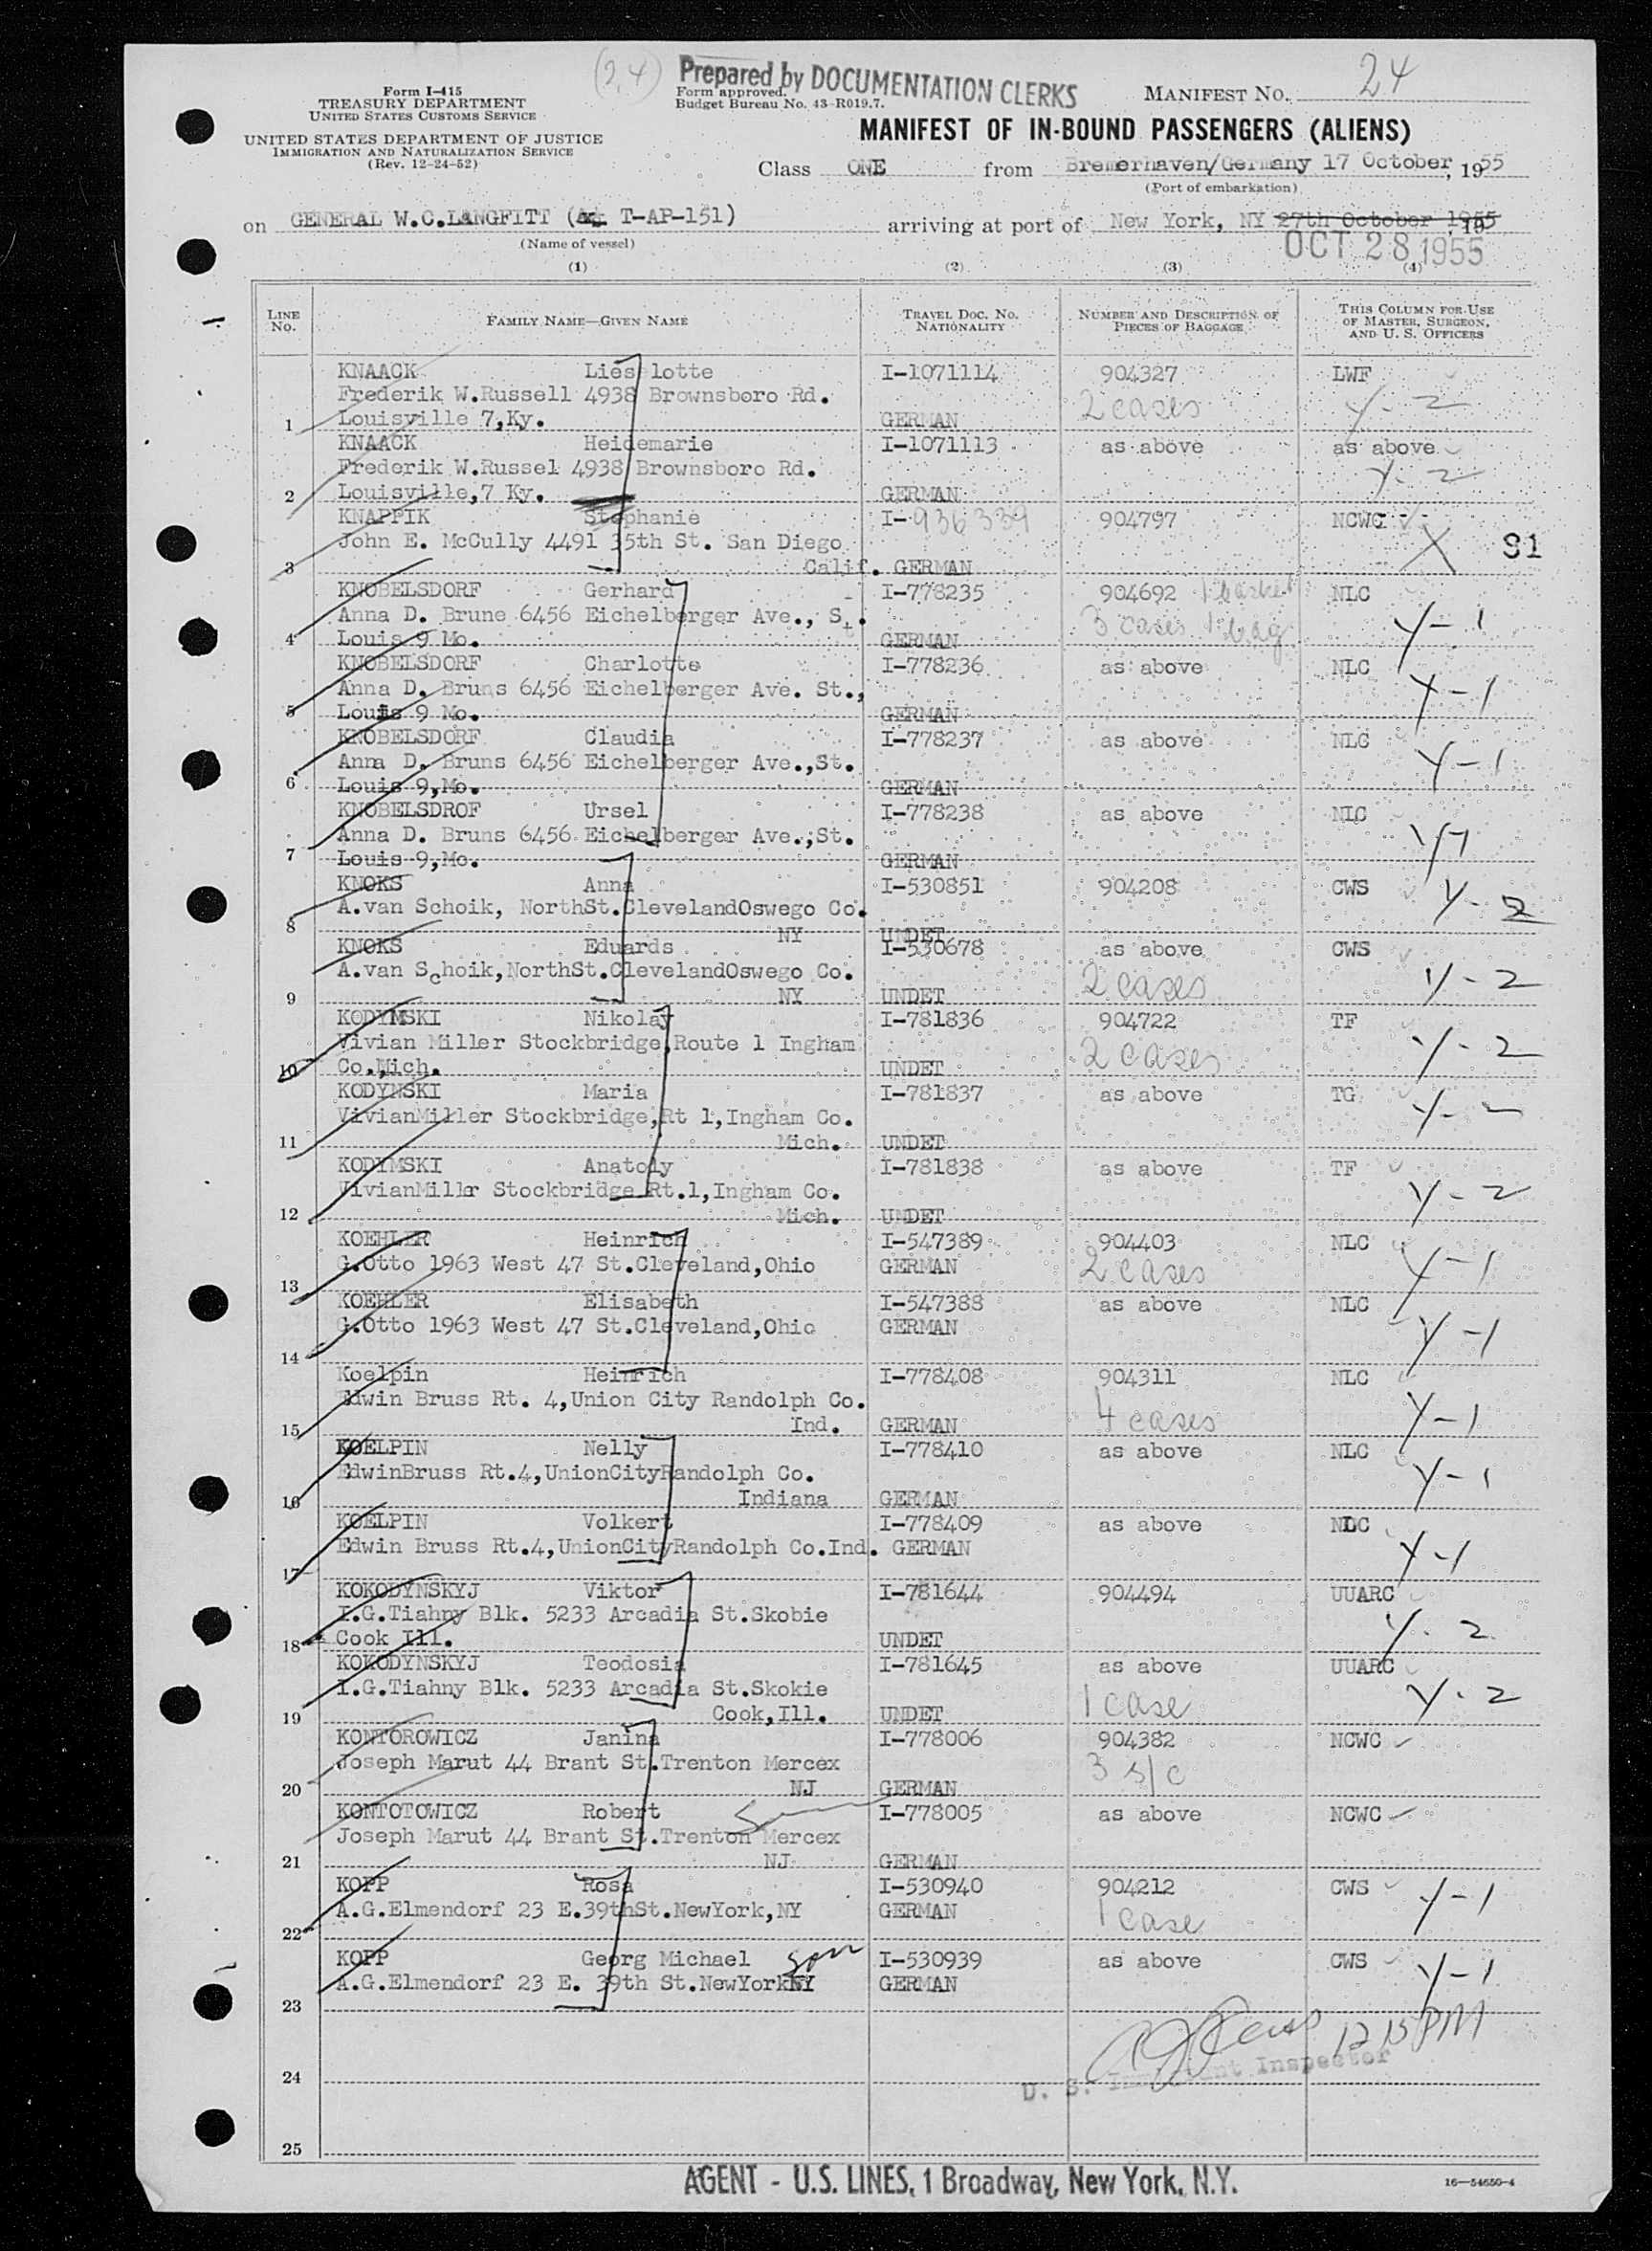 (24)
Prepared by DOCUMENTATION CLERKS
24
Form I-415
TREASURY DEPARTMENT
UNITED STATES CUSTOMS SERVICE
Form approved.
Budget Bureau No. 43-R019.7.
MANIFEST NO.
UNITED STATES DEPARTMENT OF JUSTICE
IMMIGRATION AND NATURALIZATION SERVICE
(Rev. 12-24-52)
MANIFEST OF IN-BOUND PASSENGERS (ALIENS)
Class ONE from Bremerhaven/Germany 17 October, 1955
(Port of embarkation)
on GENERAL W.C.LANGFITT ( T-AP-151) arriving at port of New York, NY 27th October 1955
(Name of vessel)
OCT 28 1955
(1) (2) (3) (4)
LINE No. FAMILY NAME—GIVEN NAME TRAVEL DOC. NO. NATIONALITY NUMBER AND DESCRIPTION OF PIECES OF BAGGAGE THIS COLUMN FOR USE OF MASTER, SURGEON, AND U. S. OFFICERS
KNAACK Lies lotte I-1071114 904327 LWF
Frederik W.Russell 4938 Brownsboro Rd. 2 cases Y-2
1 Louisville 7,Ky. GERMAN
KNAACK Heidemarie I-1071113 as above as above
Frederik W.Russel 4938 Brownsboro Rd. Y-2
2 Louisville,7 Ky. GERMAN
KNAPPIK Stephanie I-936339 904797 NCWC
John E. McCully 4491 35th St. San Diego X 91
3 Calif. GERMAN
KNOBELSDORF Gerhard I-778235 904692 1 basket NLC
Anna D. Brune 6456 Eichelberger Ave., St. 3 cases 1 bag Y-1
4 Louis 9 Mo. GERMAN
KNOBELSDORF Charlotte I-778236 as above NLC
Anna D. Bruns 6456 Eichelberger Ave. St., Y-1
5 Louis 9 Mo. GERMAN
KNOBELSDORF Claudia I-778237 as above NLC
Anna D. Bruns 6456 Eichelberger Ave.,St. Y-1
6 Louis 9,Mo. GERMAN
KNOBELSDROF Ursel I-778238 as above NLC
Anna D. Bruns 6456 Eichelberger Ave.,St. Y-1
7 Louis 9,Mo. GERMAN
KNOKS Anna I-530851 904208 CWS
A.van Schoik, NorthSt.ClevelandOswego Co. Y-2
8 NY UNDET
KNOKS Eduards I-530678 as above CWS
A.van Schoik,NorthSt.ClevelandOswego Co. 2 cases Y-2
9 NY UNDET
KODYMSKI Nikolay I-781836 904722 TF
Vivian Miller Stockbridge,Route 1 Ingham 2 cases Y-2
10 Co.Mich. UNDET
KODYNSKI Maria I-781837 as above TG
VivianMiller Stockbridge,Rt 1,Ingham Co. Y-2
11 Mich. UNDET
KODYMSKI Anatoly I-781838 as above TF
VivianMillr Stockbridge Rt.1,Ingham Co. Y-2
12 Mich. UNDET
KOEHLER Heinrich I-547389 904403 NLC
G.Otto 1963 West 47 St.Cleveland,Ohio GERMAN 2 cases Y-1
13
KOEHLER Elisabeth I-547388 as above NLC
G.Otto 1963 West 47 St.Cleveland,Ohio GERMAN Y-1
14
Koelpin Heinrich I-778408 904311 NLC
Edwin Bruss Rt. 4,Union City Randolph Co. 4 cases Y-1
15 Ind. GERMAN
KOELPIN Nelly I-778410 as above NLC
EdwinBruss Rt.4,UnionCityRandolph Co. Y-1
16 Indiana GERMAN
KOELPIN Volkert I-778409 as above NLC
Edwin Bruss Rt.4,UnionCityRandolph Co.Ind. GERMAN Y-1
17
KOKODYNSKYJ Viktor I-781644 904494 UUARC
I.G.Tiahny Blk. 5233 Arcadia St.Skobie Y-2
18 Cook Ill. UNDET
KOKODYNSKYJ Teodosia I-781645 as above UUARC
I.G.Tiahny Blk. 5233 Arcadia St.Skokie 1 case Y-2
19 Cook,Ill. UNDET
KONTOROWICZ Janina I-778006 904382 NCWC
Joseph Marut 44 Brant St.Trenton Mercex 3 s/c
20 NJ GERMAN
KONTOTOWICZ Robert I-778005 as above NCWC
Joseph Marut 44 Brant St.Trenton Mercex
21 NJ GERMAN
KOPP Rosa I-530940 904212 CWS
A.G.Elmendorf 23 E.39thSt.NewYork,NY GERMAN 1 case Y-1
22
KOPP Georg Michael son I-530939 as above CWS
A.G.Elmendorf 23 E. 39th St.NewYorkNY GERMAN Y-1
23
12 15 PM
24 U. S. Immigrant Inspector
25
AGENT - U.S. LINES, 1 Broadway, New York, N.Y.
16-54650-4